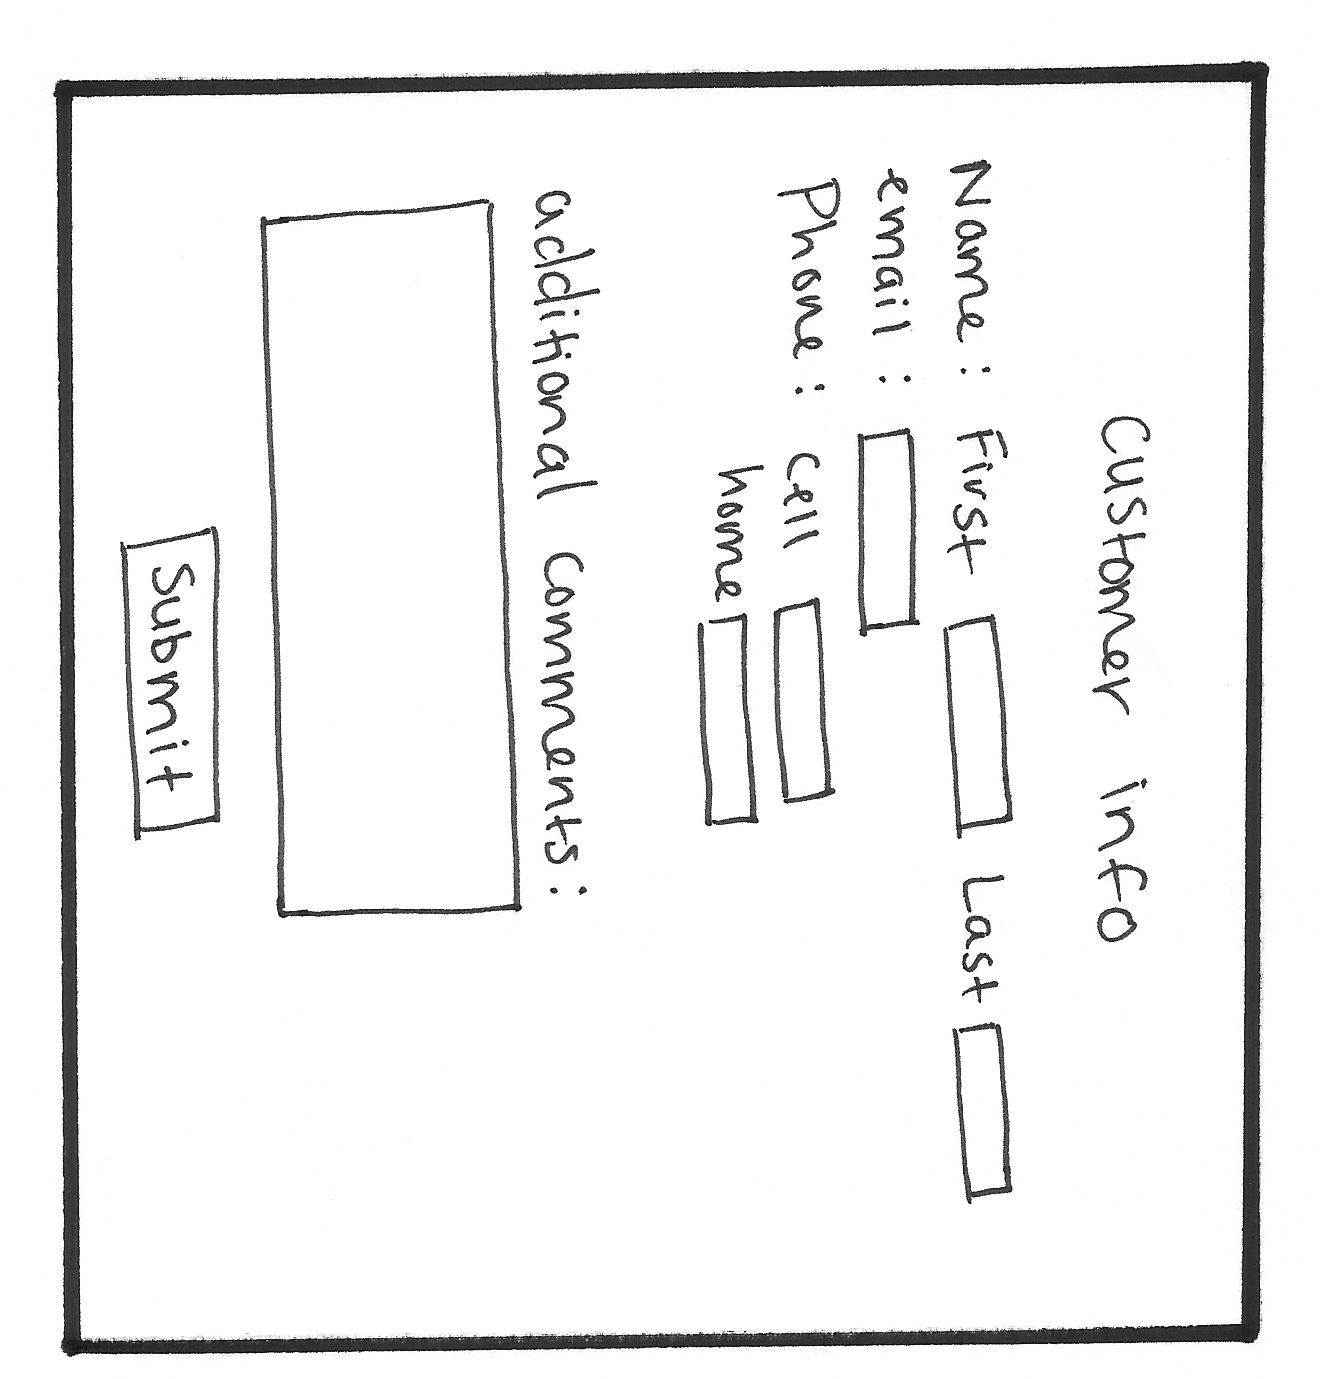 Customer info
Name: First Last
email:
Phone: cell
home
additional comments:
Submit